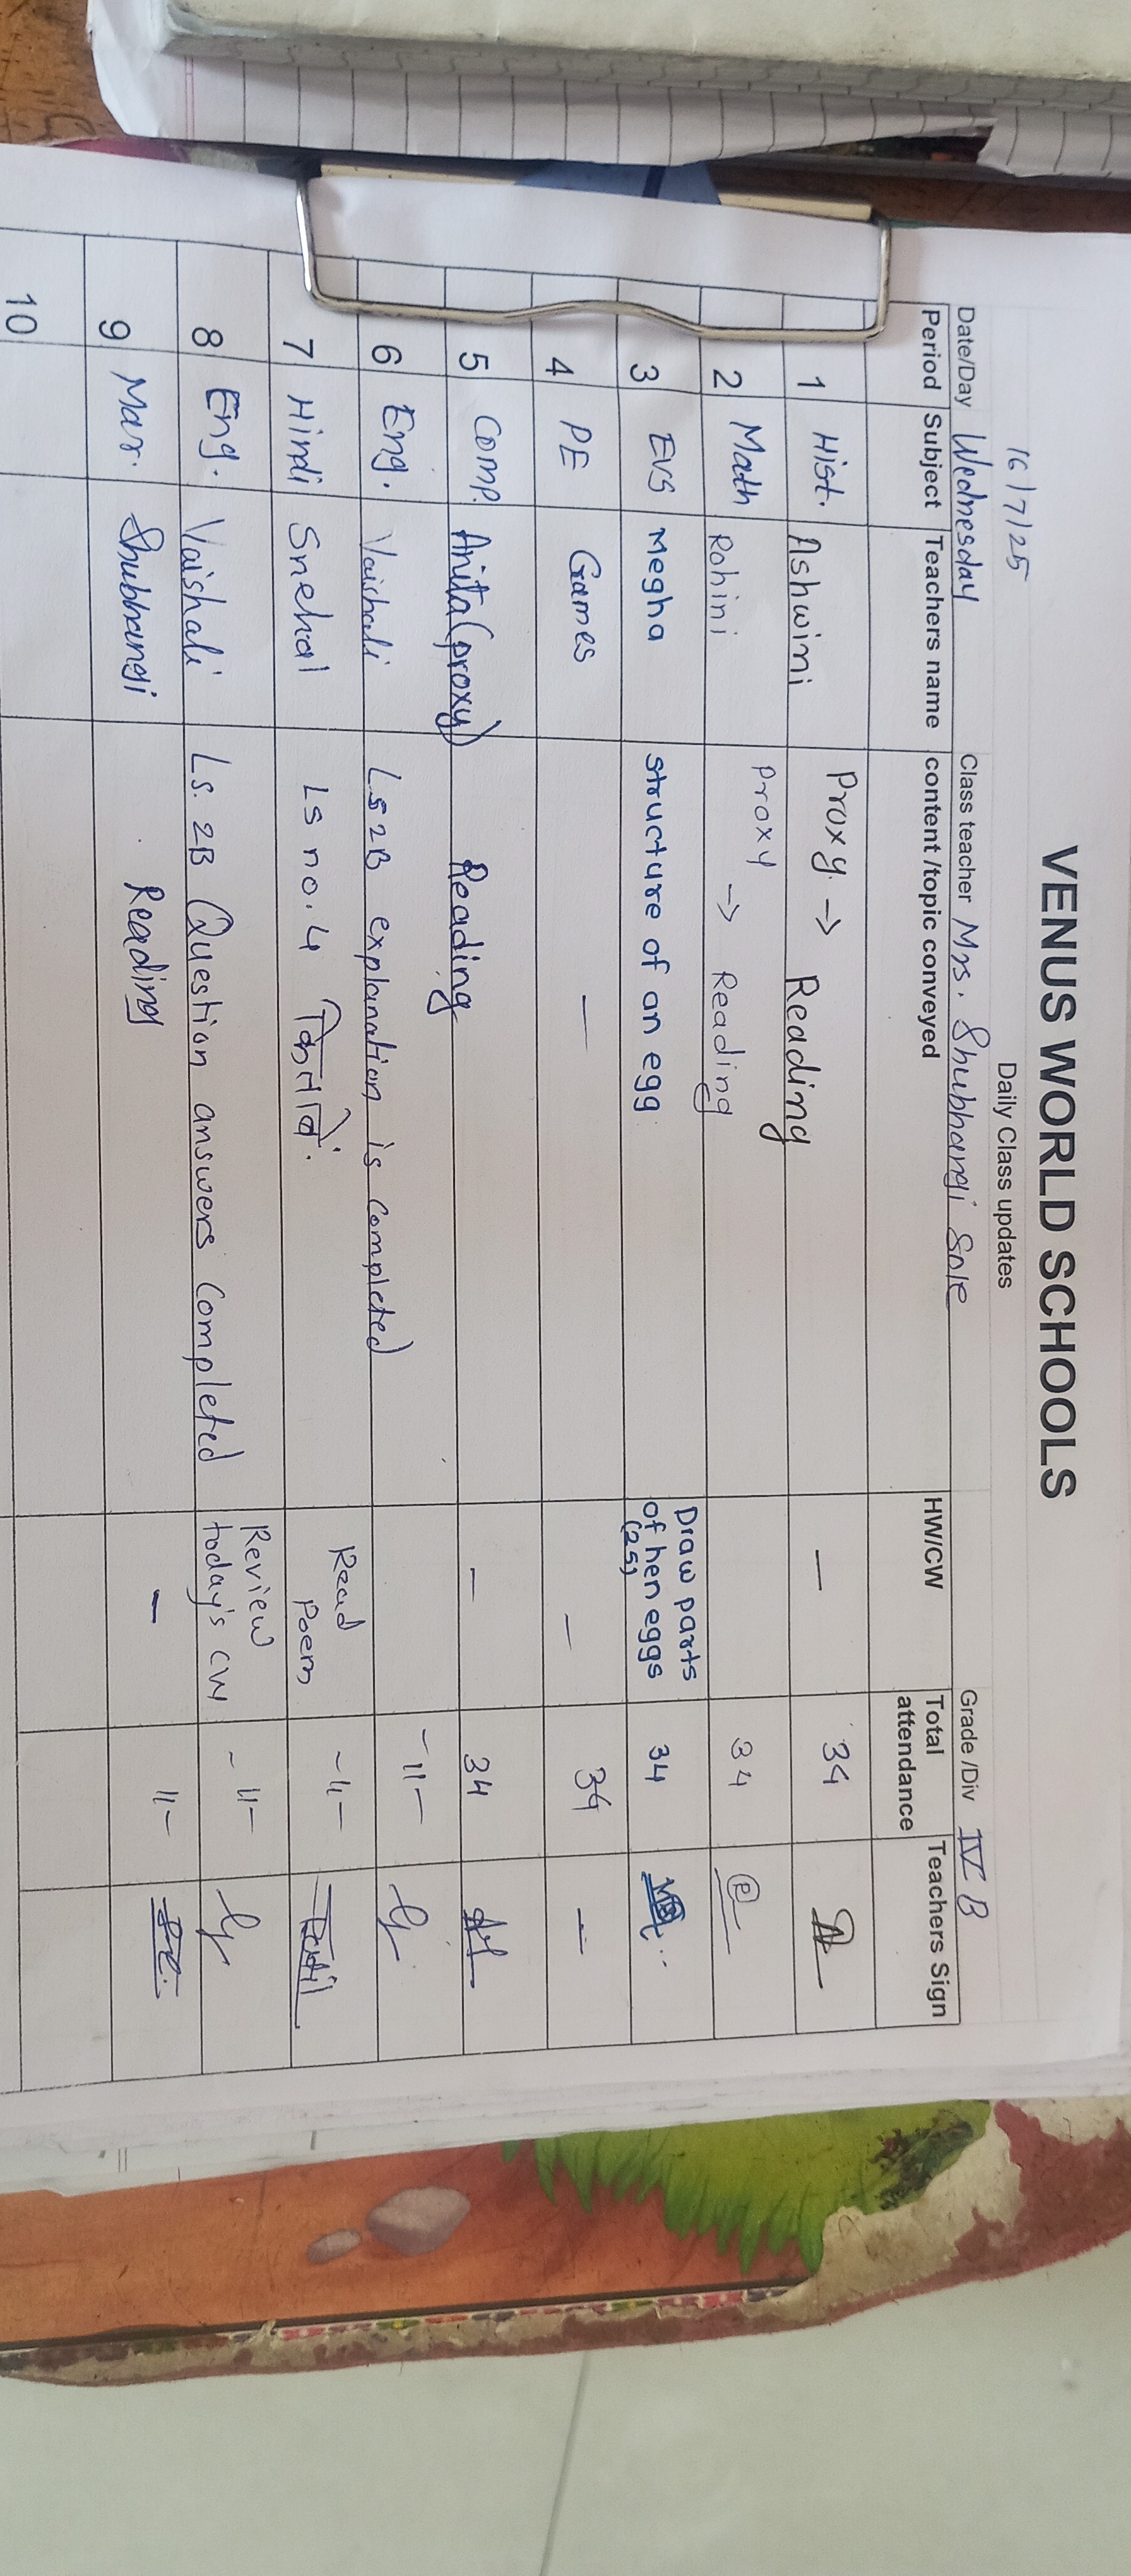 VENUS WORLD SCHOOLS
Daily Class updates
16/7/25
Date/Day Wednesday Class teacher Mrs. Shubhangi Sole Grade/Div IV B
Period Subject Teachers name content/topic conveyed HW/CW Total attendance Teachers Sign
1 Hist. Ashwini Proxy → Reading — 34
2 Math Rohini Proxy → Reading 34
3 EVS Megha structure of an egg Draw parts of hen eggs (25) 34
4 PE Games — — 34 —
5 Comp. Anita (proxy) Reading — 34
6 Eng. Vaishali Ls 2B explanation is completed -11-
7 Hindi Snehal Ls no. 4 Read Poem -11- Patil
8 Eng. Vaishali Ls. 2B Question answers completed Review today's CW -11-
9 Mar. Shubhangi Reading — 11-
10